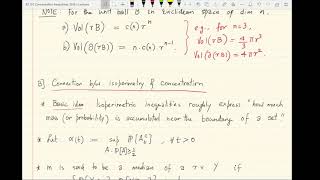 NOTE for the unit ball B in Euclidean space of dim n.
a) Vol(rB) = c(n) r^n
b) Vol(∂(rB)) = n·c(n) r^{n-1}.
e.g., for n=3,
Vol(rB) = 4/3 πr³
Vol(∂(rB)) = 4πr².
B] Connection b/w isoperimetry & concentration
* Basic idea Isoperimetric inequalities roughly express "how much
mass (or probability) is accumulated near the boundary of a set"
* Let α(t) := sup P[A_t^c] , ∀t>0
A: P[A] ≥ 1/2
* m is said to be a median of a rv Y if